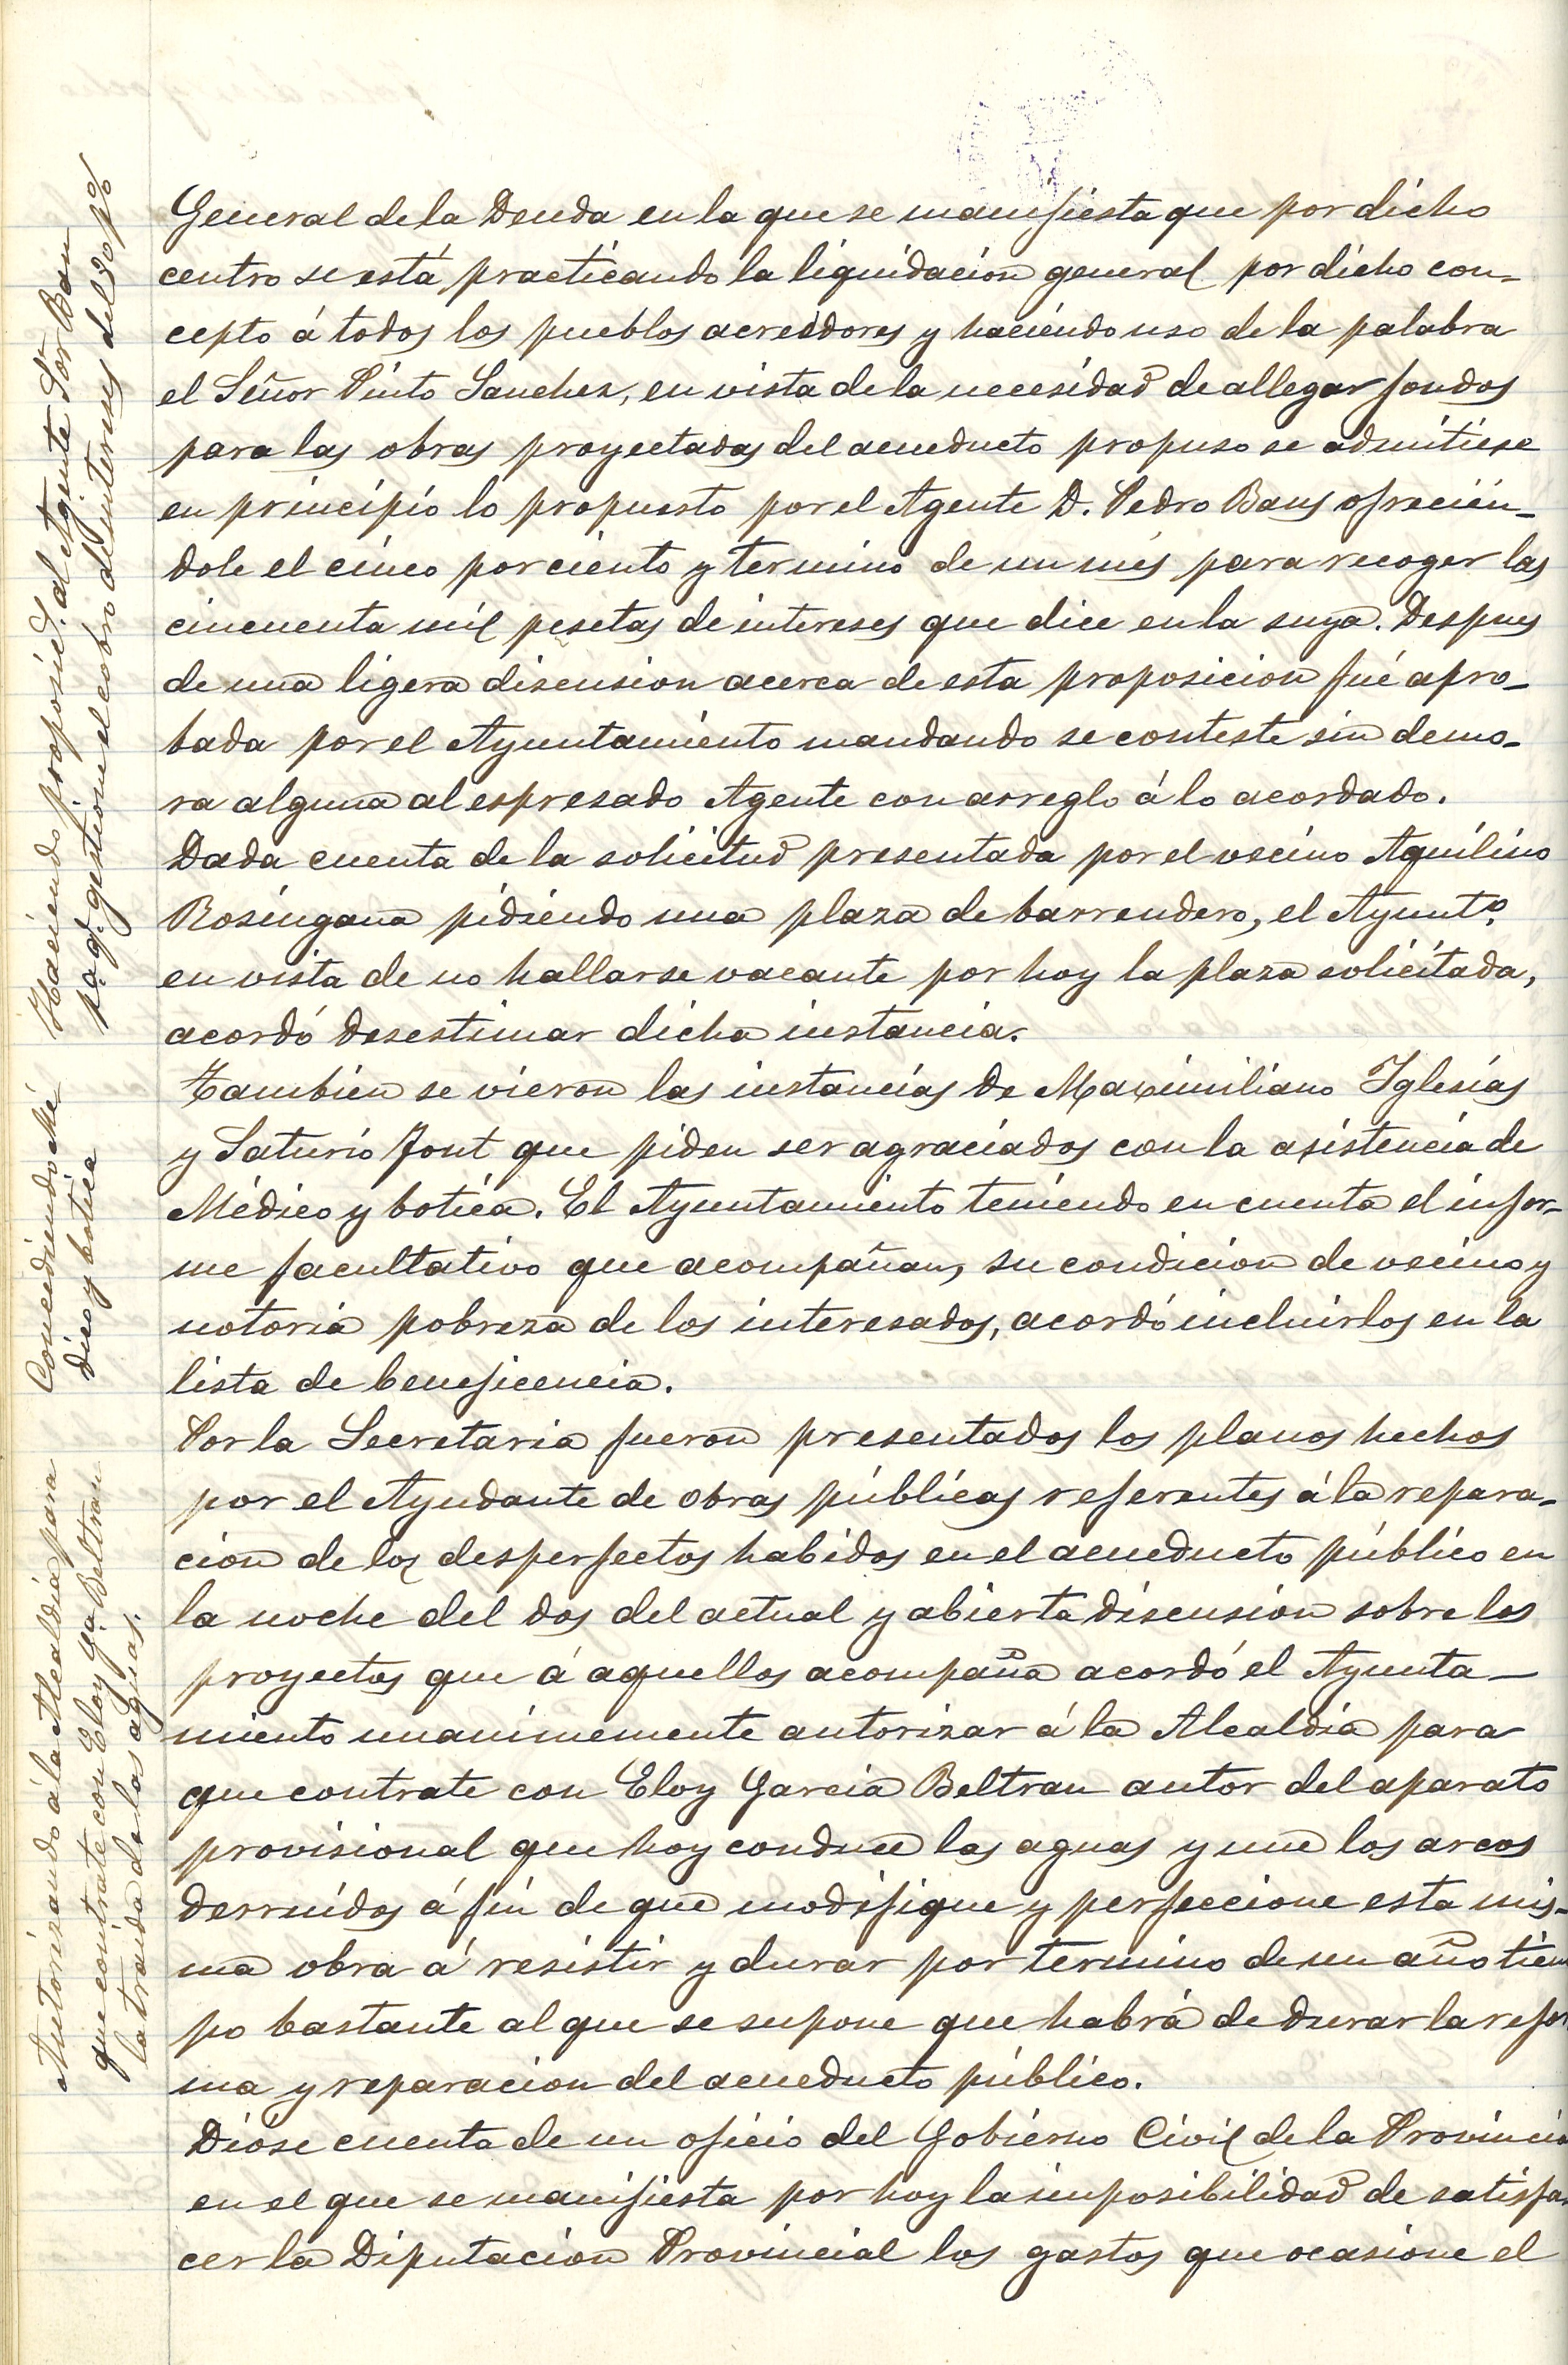 General de la Deuda en la que se manifiesta que por dicho
centro se está practicando la liquidacion general por dicho con-
cepto á todos los pueblos acreedores y haciendo uso de la palabra
el Señor Pinto Sanchez, en vista de la necesidad de allegar fondos
para las obras proyectadas del acueducto propuso se admitiese
en principio lo propuesto por el Agente D. Pedro Baus ofrecién-
dole el cinco por ciento y termino de un més para recoger las
cincuenta mil pesetas de intereses que dice en la suya. Despues
de una ligera discusion acerca de esta proposicion fué apro-
bada por el Ayuntamiento mandando se conteste sin demo-
ra alguna al espresado Agente con arreglo á lo acordado.
Dada cuenta de la solicitud presentada por el vecino Aquilino
Rosingana pidiendo una plaza de barrendero, el Ayunt.º
en vista de no hallarse vacante por hoy la plaza solicitada,
acordó desestimar dicha instancia.
Tambien se vieron las instancias de Maximiliano Iglesias
y Saturio Font que piden ser agraciados con la asistencia de
Médico y botica. El Ayuntamiento teniendo en cuenta el infor-
me facultativo que acompañan, su condicion de vecino y
notoria pobreza de los interesados, acordó incluirlos en la
lista de beneficencia.
Por la Secretaria fueron presentados los planos hechos
por el Ayudante de obras públicas referentes á la repara-
cion de los desperfectos habidos en el acueducto público en
la noche del dos del actual y abierta discusion sobre los
proyectos que á aquellos acompaña acordó el Ayunta-
miento unanimemente autorizar á la Alcaldia para
que contrate con Eloy Garcia Beltran autor del aparato
provisional que hoy conduce las aguas y une los arcos
derruidos á fin de que modifique y perfeccione esta mis-
ma obra á resistir y durar por termino de un año tiem
po bastante al que se supone que habrá de durar la refor
ma y reparacion del acueducto público.
Dióse cuenta de un oficio del Gobierno Civil de la Provincia
en el que se manifiesta por hoy la imposibilidad de satisfa-
cer la Diputacion Provincial los gastos que ocasione el
Haciendo proposic.ⁿ al Agente Sór Baus
p.ª q.º gestione el cobro de intereses del 80 p%
Concediendo Mé
dico y botica
Autorizando á la Alcaldia para
que contrate con Eloy G.ª Beltran
la traida de las aguas.